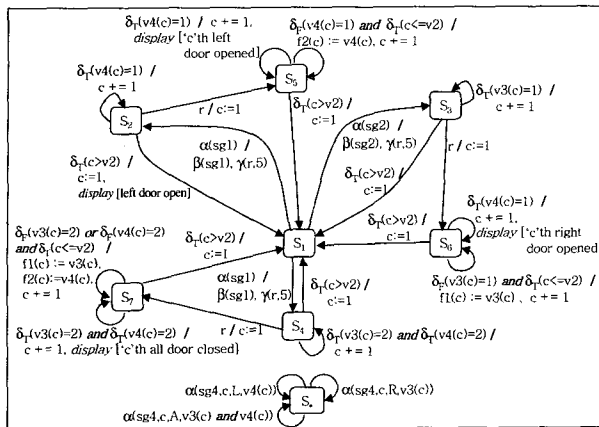 δT(v4(c)=1) / c += 1,
display ['c'th left
door opened]
δF(v4(c)=1) and δT(c<=v2) /
f2(c) := v4(c), c += 1
S5
δT(v4(c)=1) /
c += 1
S2
r / c:=1
δT(c>v2) /
c:=1
δT(v3(c)=1) /
c += 1
S3
α(sg1) /
β(sg1), γ(r,5)
α(sg2) /
β(sg2), γ(r,5)
r / c:=1
δT(c>v2) /
c:=1,
display [left door open]
δT(c>v2) /
c:=1
δT(v4(c)=1) /
c += 1,
display ['c'th right
door opened
δF(v3(c)=2) or δF(v4(c)=2)
and δT(c<=v2) /
f1(c) := v3(c),
f2(c):=v4(c),
c += 1
δT(c>v2) /
c:=1
S1
δT(c>v2) /
c:=1
S6
δF(v3(c)=1) and δT(c<=v2) /
f1(c) := v3(c) , c += 1
S7
α(sg1) /
β(sg1), γ(r,5)
δT(c>v2) /
c:=1
r / c:=1
S4
δT(v3(c)=2) and δT(v4(c)=2) /
c += 1, display ['c'th all door closed}
δT(v3(c)=2) and δT(v4(c)=2) /
c += 1
α(sg4,c,L,v4(c))
S*
α(sg4,c,R,v3(c))
α(sg4,c,A,v3(c) and v4(c))